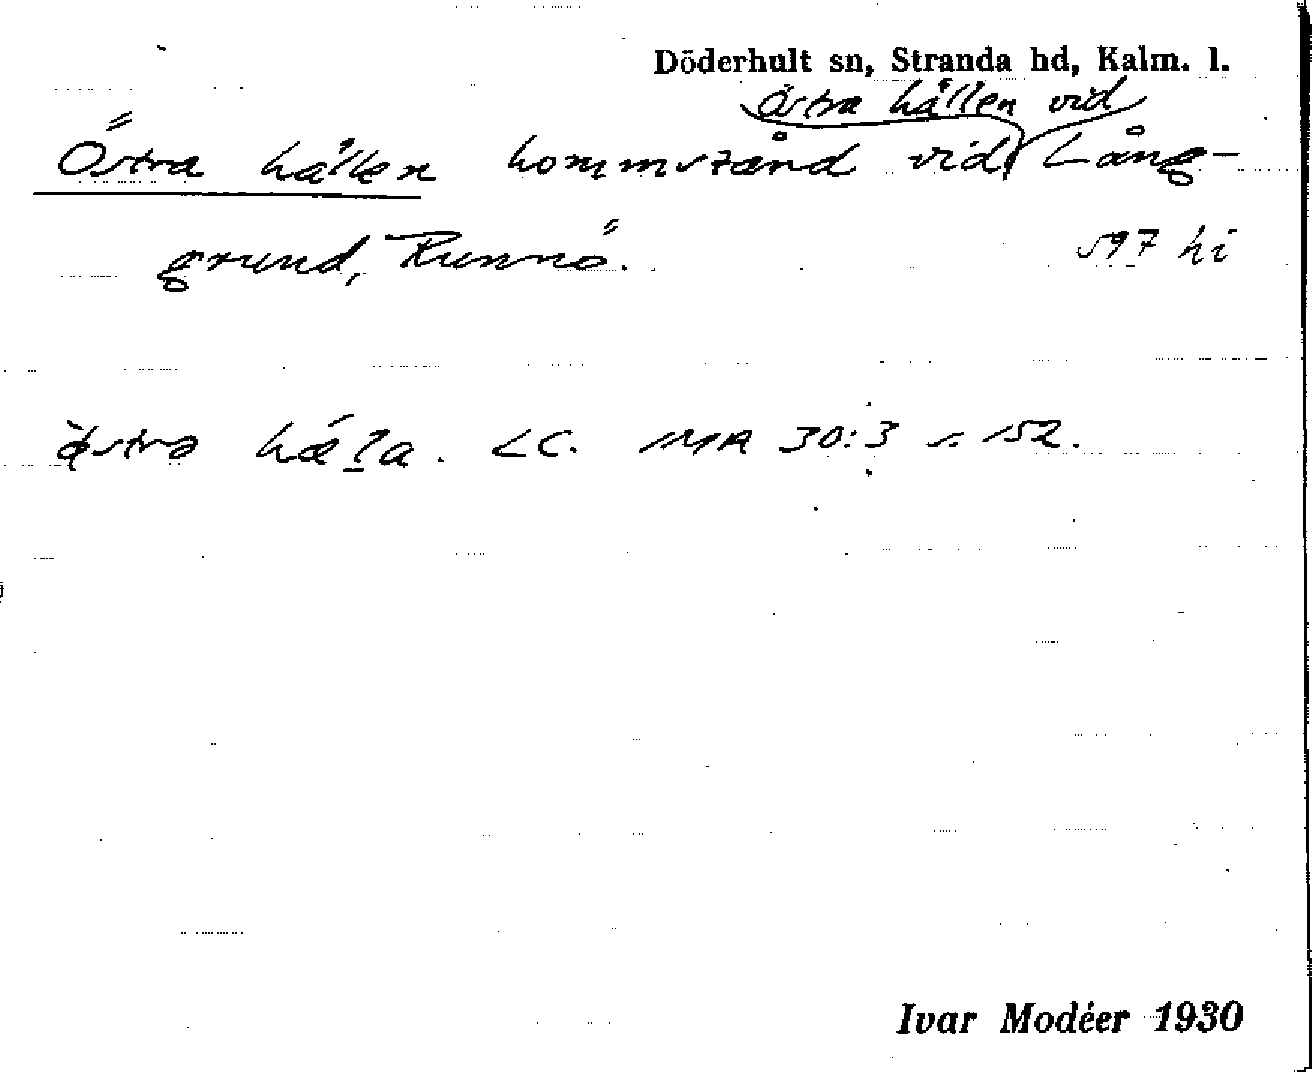 Döderhult sn, Stranda hd, Kalm. l.
Östra hällen vid
Östra hållen kommstånd vid Lång-
grund, Runnö. 597 hi
ästra háḻa. LC. MA 30:3 s. 152.
Ivar Modéer 1930